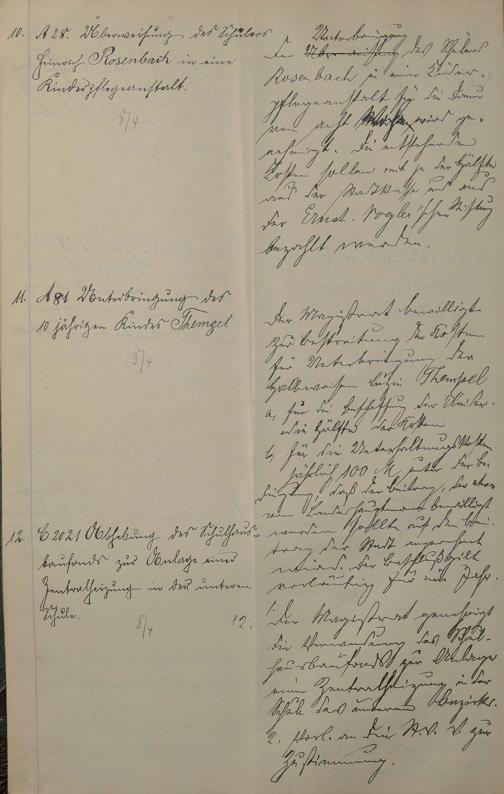 10. A 28. Überweisung des Schülers
Heinrich Rosenbach in eine
Kinderpflegeanstalt.
8/4
Unterbringung
Die Überweisung des Schülers
Rosenbach in eine Kinder-
pflegeanstalt für die Dauer
von acht Wochen wird ge-
nehmigt. Die entstehenden
Kosten sollen mit je der Hälfte
aus der Stadtkasse und aus
der Ernst-Vogler'schen Stiftung
bezahlt werden.
11. A 81 Unterbringung des
10 jährigen Kindes Themzel
8/4
Der Magistrat bewilligt
zur Bestreitung der Kosten
für Unterbringung der
Halbwaisen
a, für die Beschaffung der Kleider
die Hälfte der Kosten
b, für die Unterhaltungskosten
jährlich 100 M unter der Be-
dingung, daß der Beitrag, der etwa
vom Landeshauptmann bewilligt
werden sollte auf den Bei-
trag der Stadt angerechnet
wird. Der Beschluß gilt
vorläufig für ein Jahr.
12. C 2021 Abhebung des Schulhaus-
baufonds zur Anlage einer
Zentralheizung in der unteren
Schule.
8/4
12.
1. Der Magistrat genehmigt
die Verwendung des Schul-
hausbaufonds zur Anlage
einer Zentralheizung in der
Schule des unteren Bezirks.
2. Vorl. an die St. V. V. zur
Zustimmung.